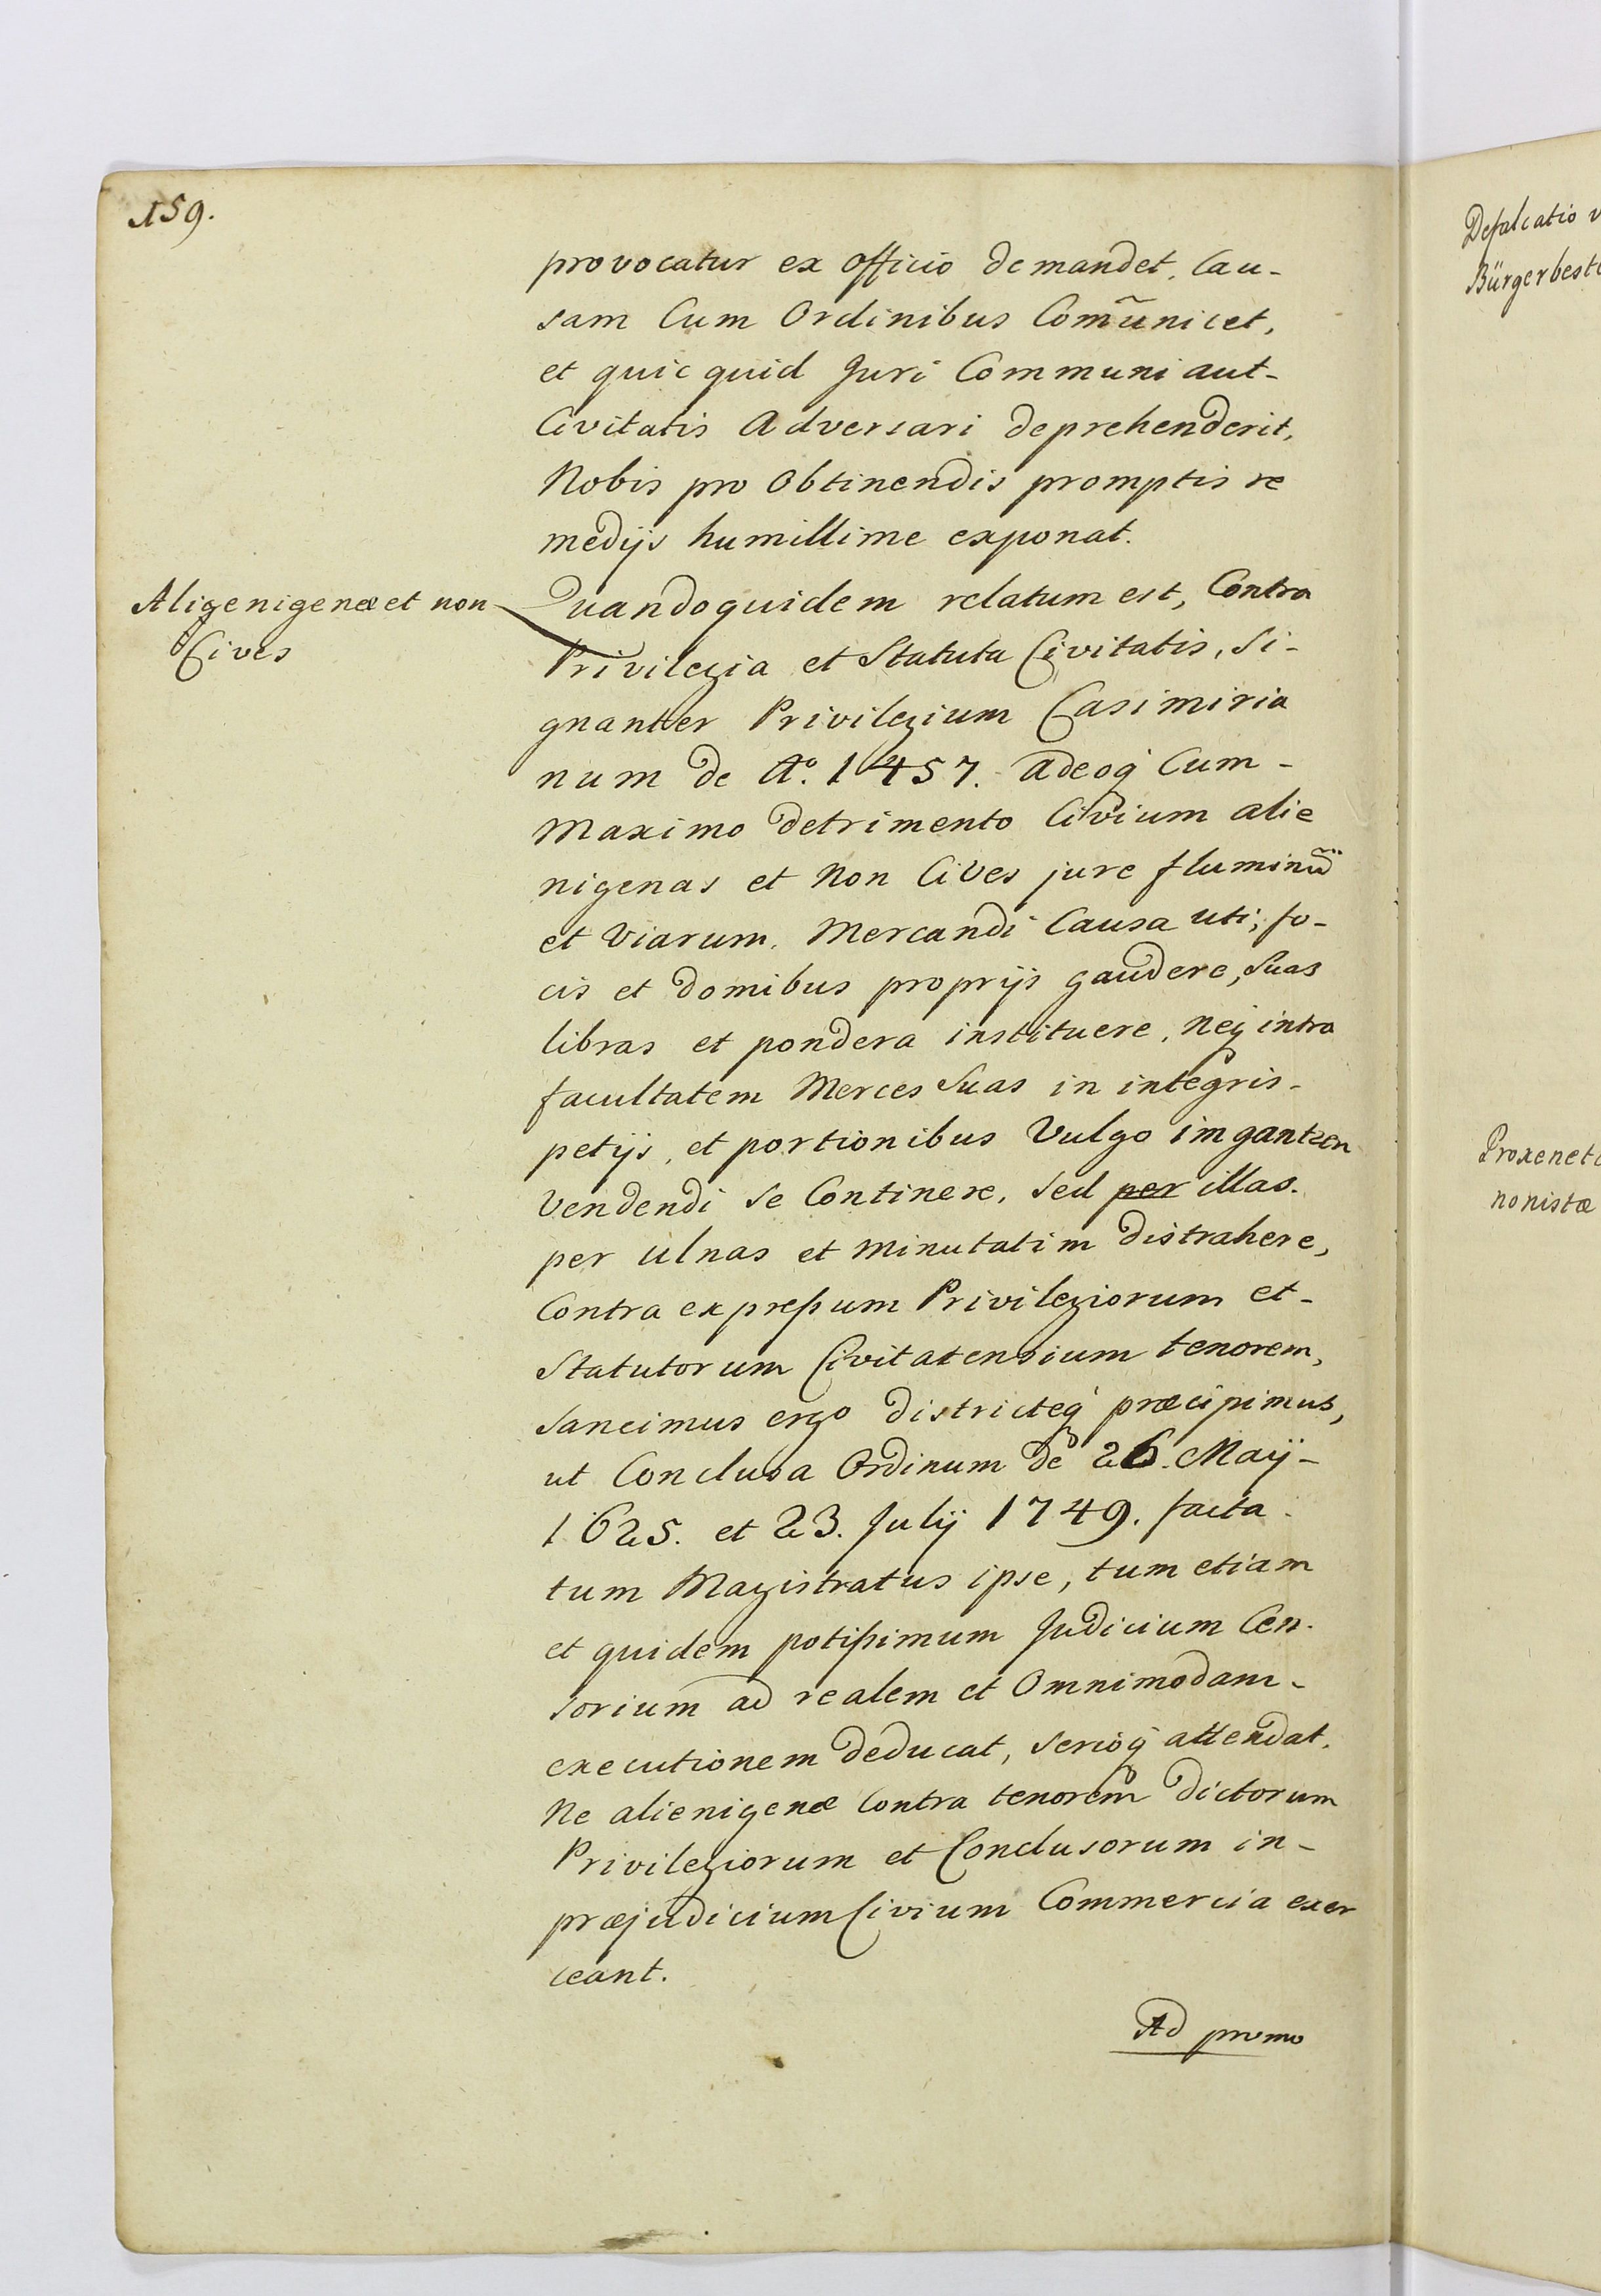 159.
provocatur ex officio demandet, Cau-
sam Cum Ordinibus Com̃unicet,
et quicquid Juri Communi aut-
Civitatis Adversari deprehenderit,
Nobis pro Obtinendis promptis re
medijs humillime exponat.
Aligenigenæ et non
Cives
Quandoquidem relatum est, Contra
Privilegia et Statuta Civitatis, Si-
gnanter Privilegium Casimiria
num de Aº. 1457. adeoq́ Cum-
Maximo detrimento Civium alie
nigenas et Non Cives jure fluminũ
et Viarum, Mercandi Causa uti, fo-
cis et domibus proprijs gaudere, Suas
libras et pondera instituere, neq́ intra
facultatem Merces Suas in integris-
petijs, et portionibus Vulgo im gantzen
Vendendi se Continere, sed per illas.
per ulnas et minutatim distrahere,
Contra expressum Privilegiorum et-
Statutorum Civitatensium tenorem,
Sancimus ergo districteq́ præcipimus,
ut Conclusa Ordinum de 26. Maij-
1625. et 23. Julij 1749. facta.
tum Magistratus ipse, tum etiam
et quidem potissimum Judicium Cen-
sorium ad realem et Omnimodam-
executionem deducat, serioq́ attendat,
Ne alienigenæ Contra tenorem dictorum
Privilegiorum et Conclusorum in-
præjudicium Civium Commercia exer
ceant.
Ad promo
Defalcatio
Bürgerbest
Proxenet
nonistæ